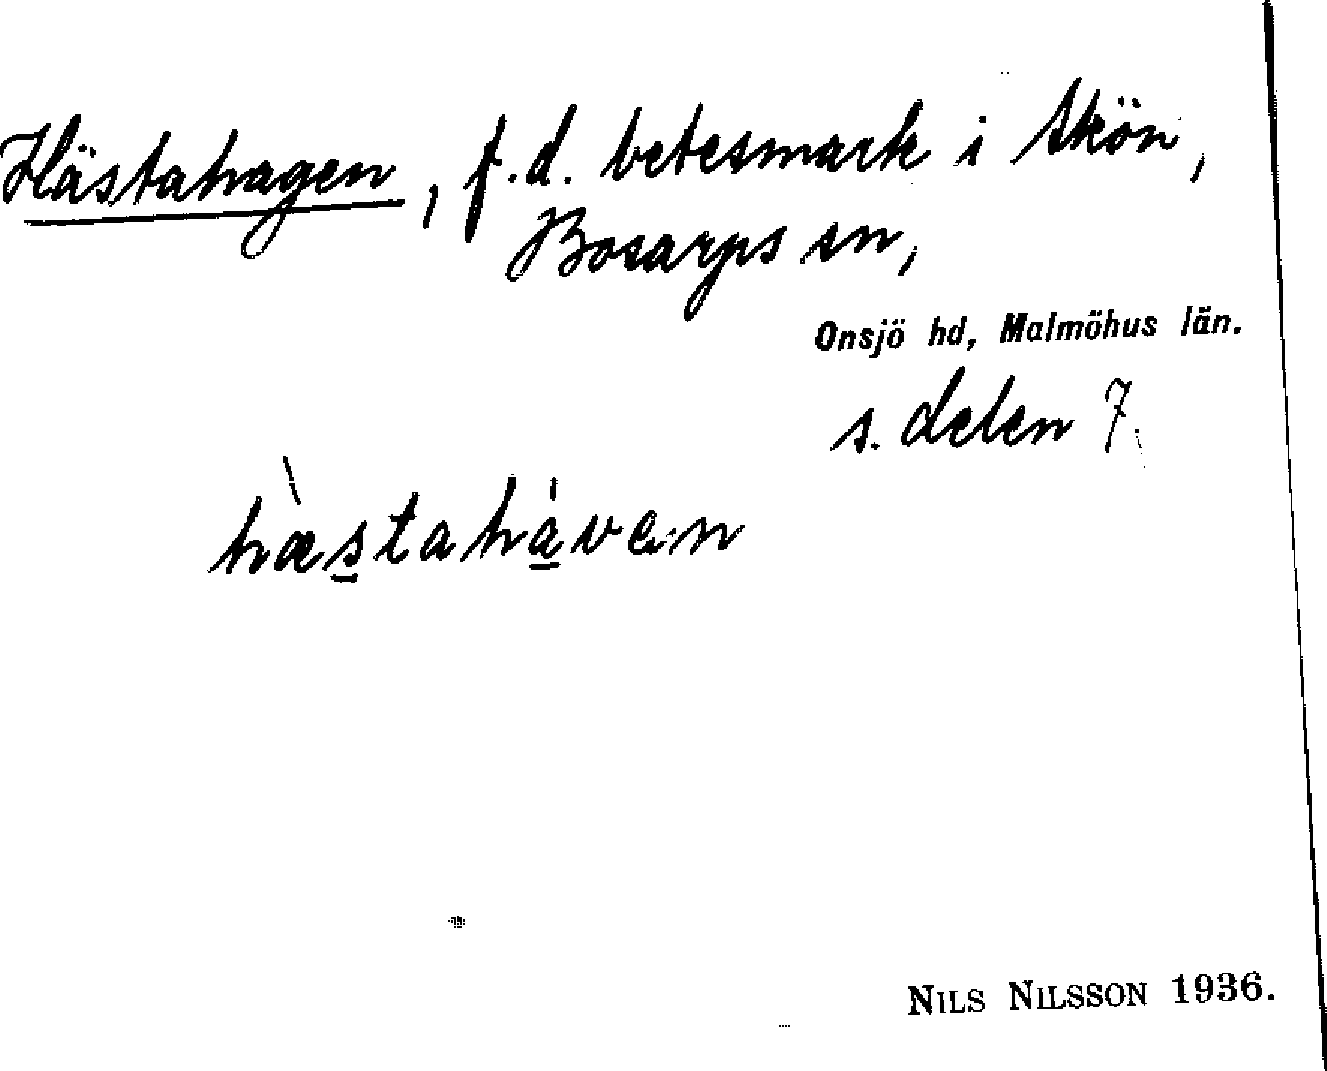 Hästahagen, f.d. betesmark i Skön,
Bosarps sn,
Onsjö hd, Malmöhus län.
s. delen 7.
hæ̀s̲tahá̲ven
NILS NILSSON 1936.